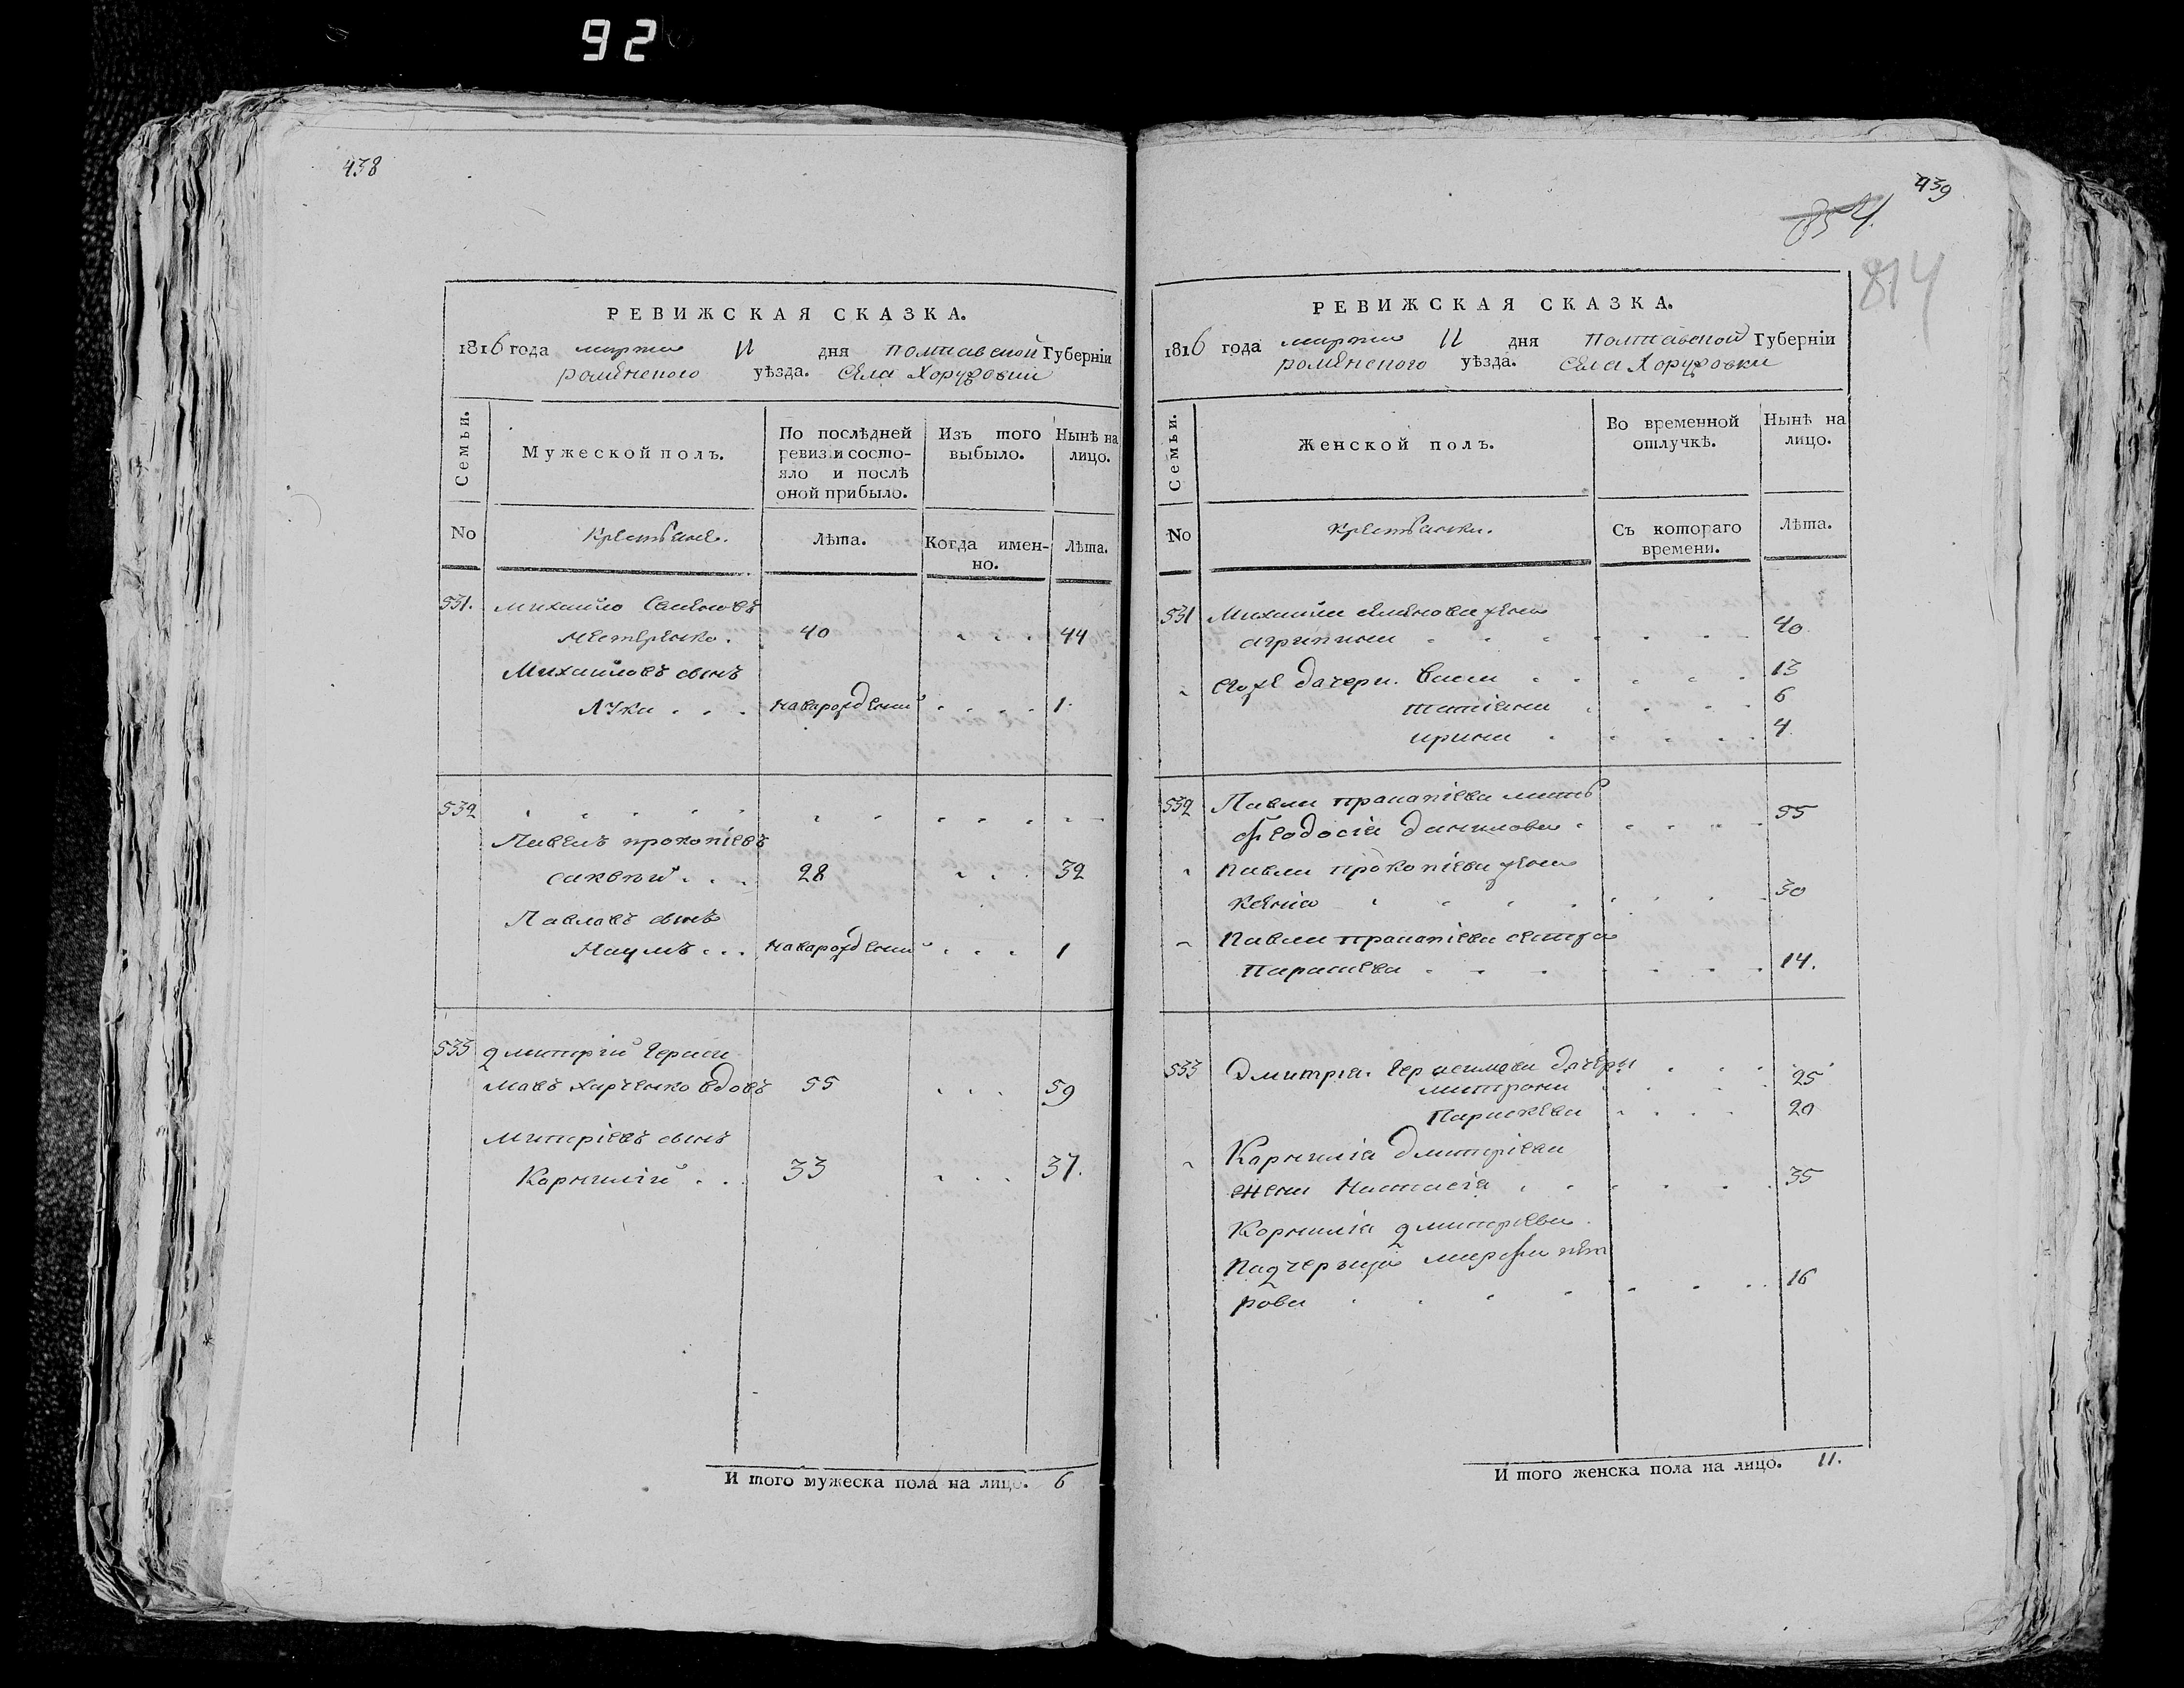 92
438
РЕВИЖСКАЯ СКАЗКА.
1816 года марта 11 дня полтавской Губерніи
роменского уѣзда. села Хоружовки
Семьи.
Мужеской полъ.
По послѣдней
ревизіи состо-
яло и послѣ
оной прибыло.
Изъ того
выбыло.
Нынѣ на
лицо.
No
Крестьяне.
Лѣта.
Когда имен-
но.
Лѣта.
531. михайло Семеновъ
нестеренко . 40 44
Михайловъ сынъ
Лука . . . новорожденный 1.
532
Павелъ прокопіевъ
28 32
Павловъ сынъ
Наумъ . . . новорожденный 1
533 дмитрій Гераси
мовъ харченко вдовъ 55 59
митріевъ сынъ
Корнилій . . 33 37.
И того мужеска пола на лицо. 6
439
854.
814
РЕВИЖСКАЯ СКАЗКА.
1816 года марта 11 дня Полтавской Губерніи
роменского уѣзда. села Хоружовки
Семьи.
Женской полъ.
Во временной
отлучкѣ.
Нынѣ на
лицо.
No
крестьянки.
Съ котораго
времени.
Лѣта.
531 Михайла семенова жена
агрипина 40
его же дочери. Васса 13
татіана 6
ирина 4
532 Павла пракапіева мать
феодосія данилова 55
павла прокопіева жена
ксенія 30
павла пракапіева сестра
Параскева 14.
533 Дмитрія. Герасимова дочери
митрона 25
Параскева 20
Корнилія дмитріева
жена Настасія 35
Корнилія дмитріева
падчерица марфа пет
рова 16
И того женска пола на лицо. 11.